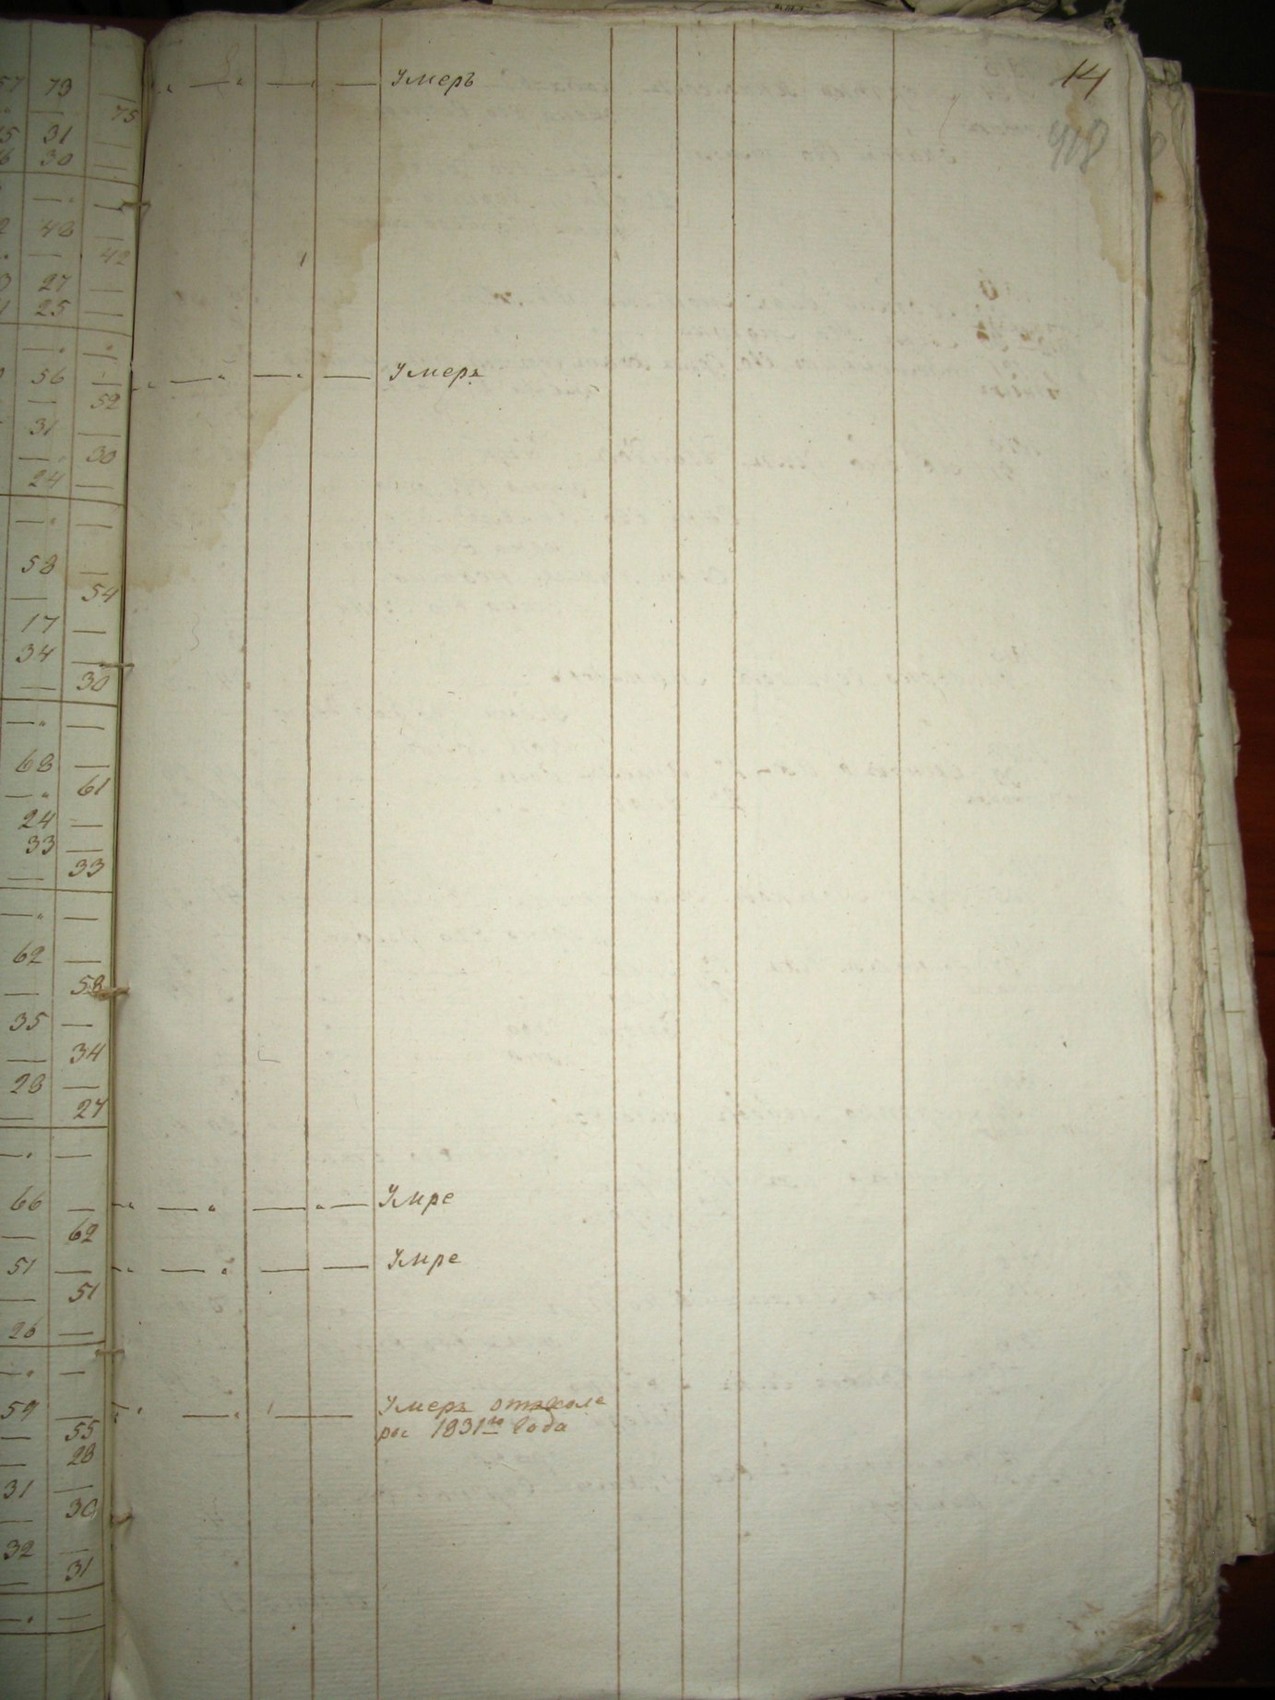 14
418
57 79 —
— 75
15 31 —
16 30 —
48 —
— 42
27 —
25 —
56 —
— 52
31 —
— 30
24 —
58 —
— 54
17 —
34 —
— 30
68 —
— 61
24 —
33 —
— 33
62 —
— 58
35 —
— 34
28 —
— 27
66 —
— 62
51 —
— 51
26 —
59 —
— 55
— 28
31 —
— 30
32 —
— 31
Умеръ
Умеръ
Умре
Умре
Умеръ отъ холе
ры 1831го Года